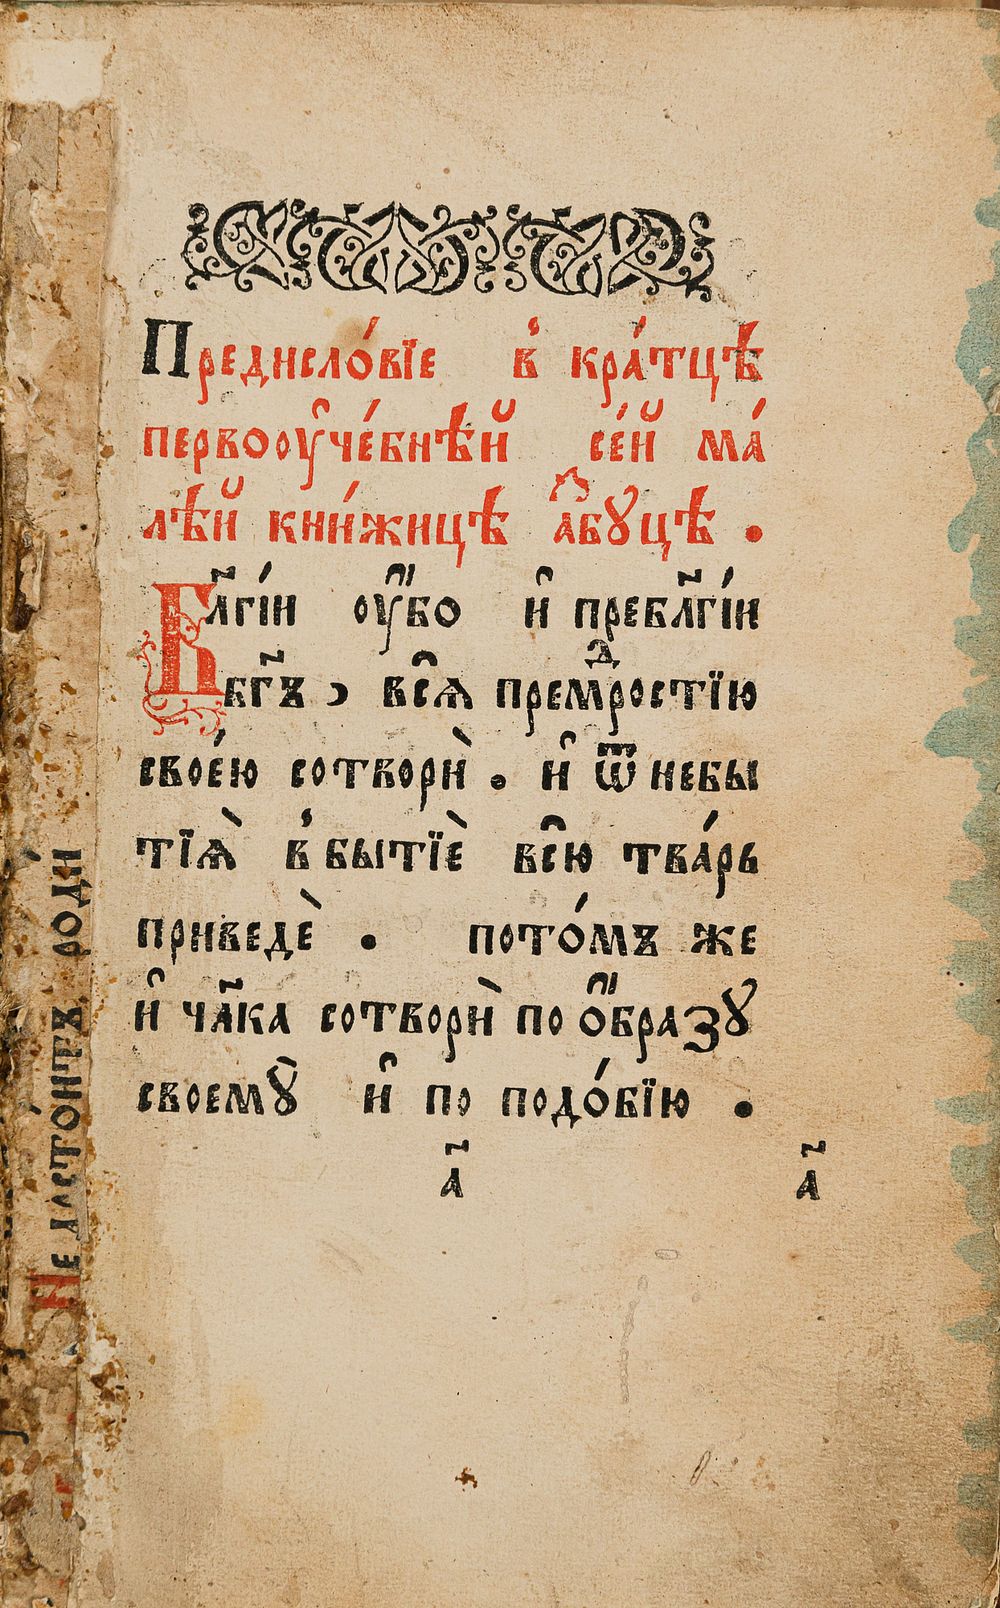 Предисло́вїе в̾ кра́тцѣ
первоꙋче́бнѣй се́й ма́
лѣй кни́жицѣ а҆́збꙋцѣ .
Бл҃гі́й ᲂу҆̀бо и҆ пребл҃гі́й
бг҃ъ , всѧ̑ премⷣростїю
свое́ю сотворѝ . и҆ ѿ небы
тїѧ̀ в̾ бытїѐ всю̑ тва́рь
приведѐ . пото́мъ же
и҆ чл҃ка сотворѝ по ѻ҆́бразꙋ
своемꙋ̀ и҆ по подо́бїю .
а҃ а҃
Не достои́тъ роди́